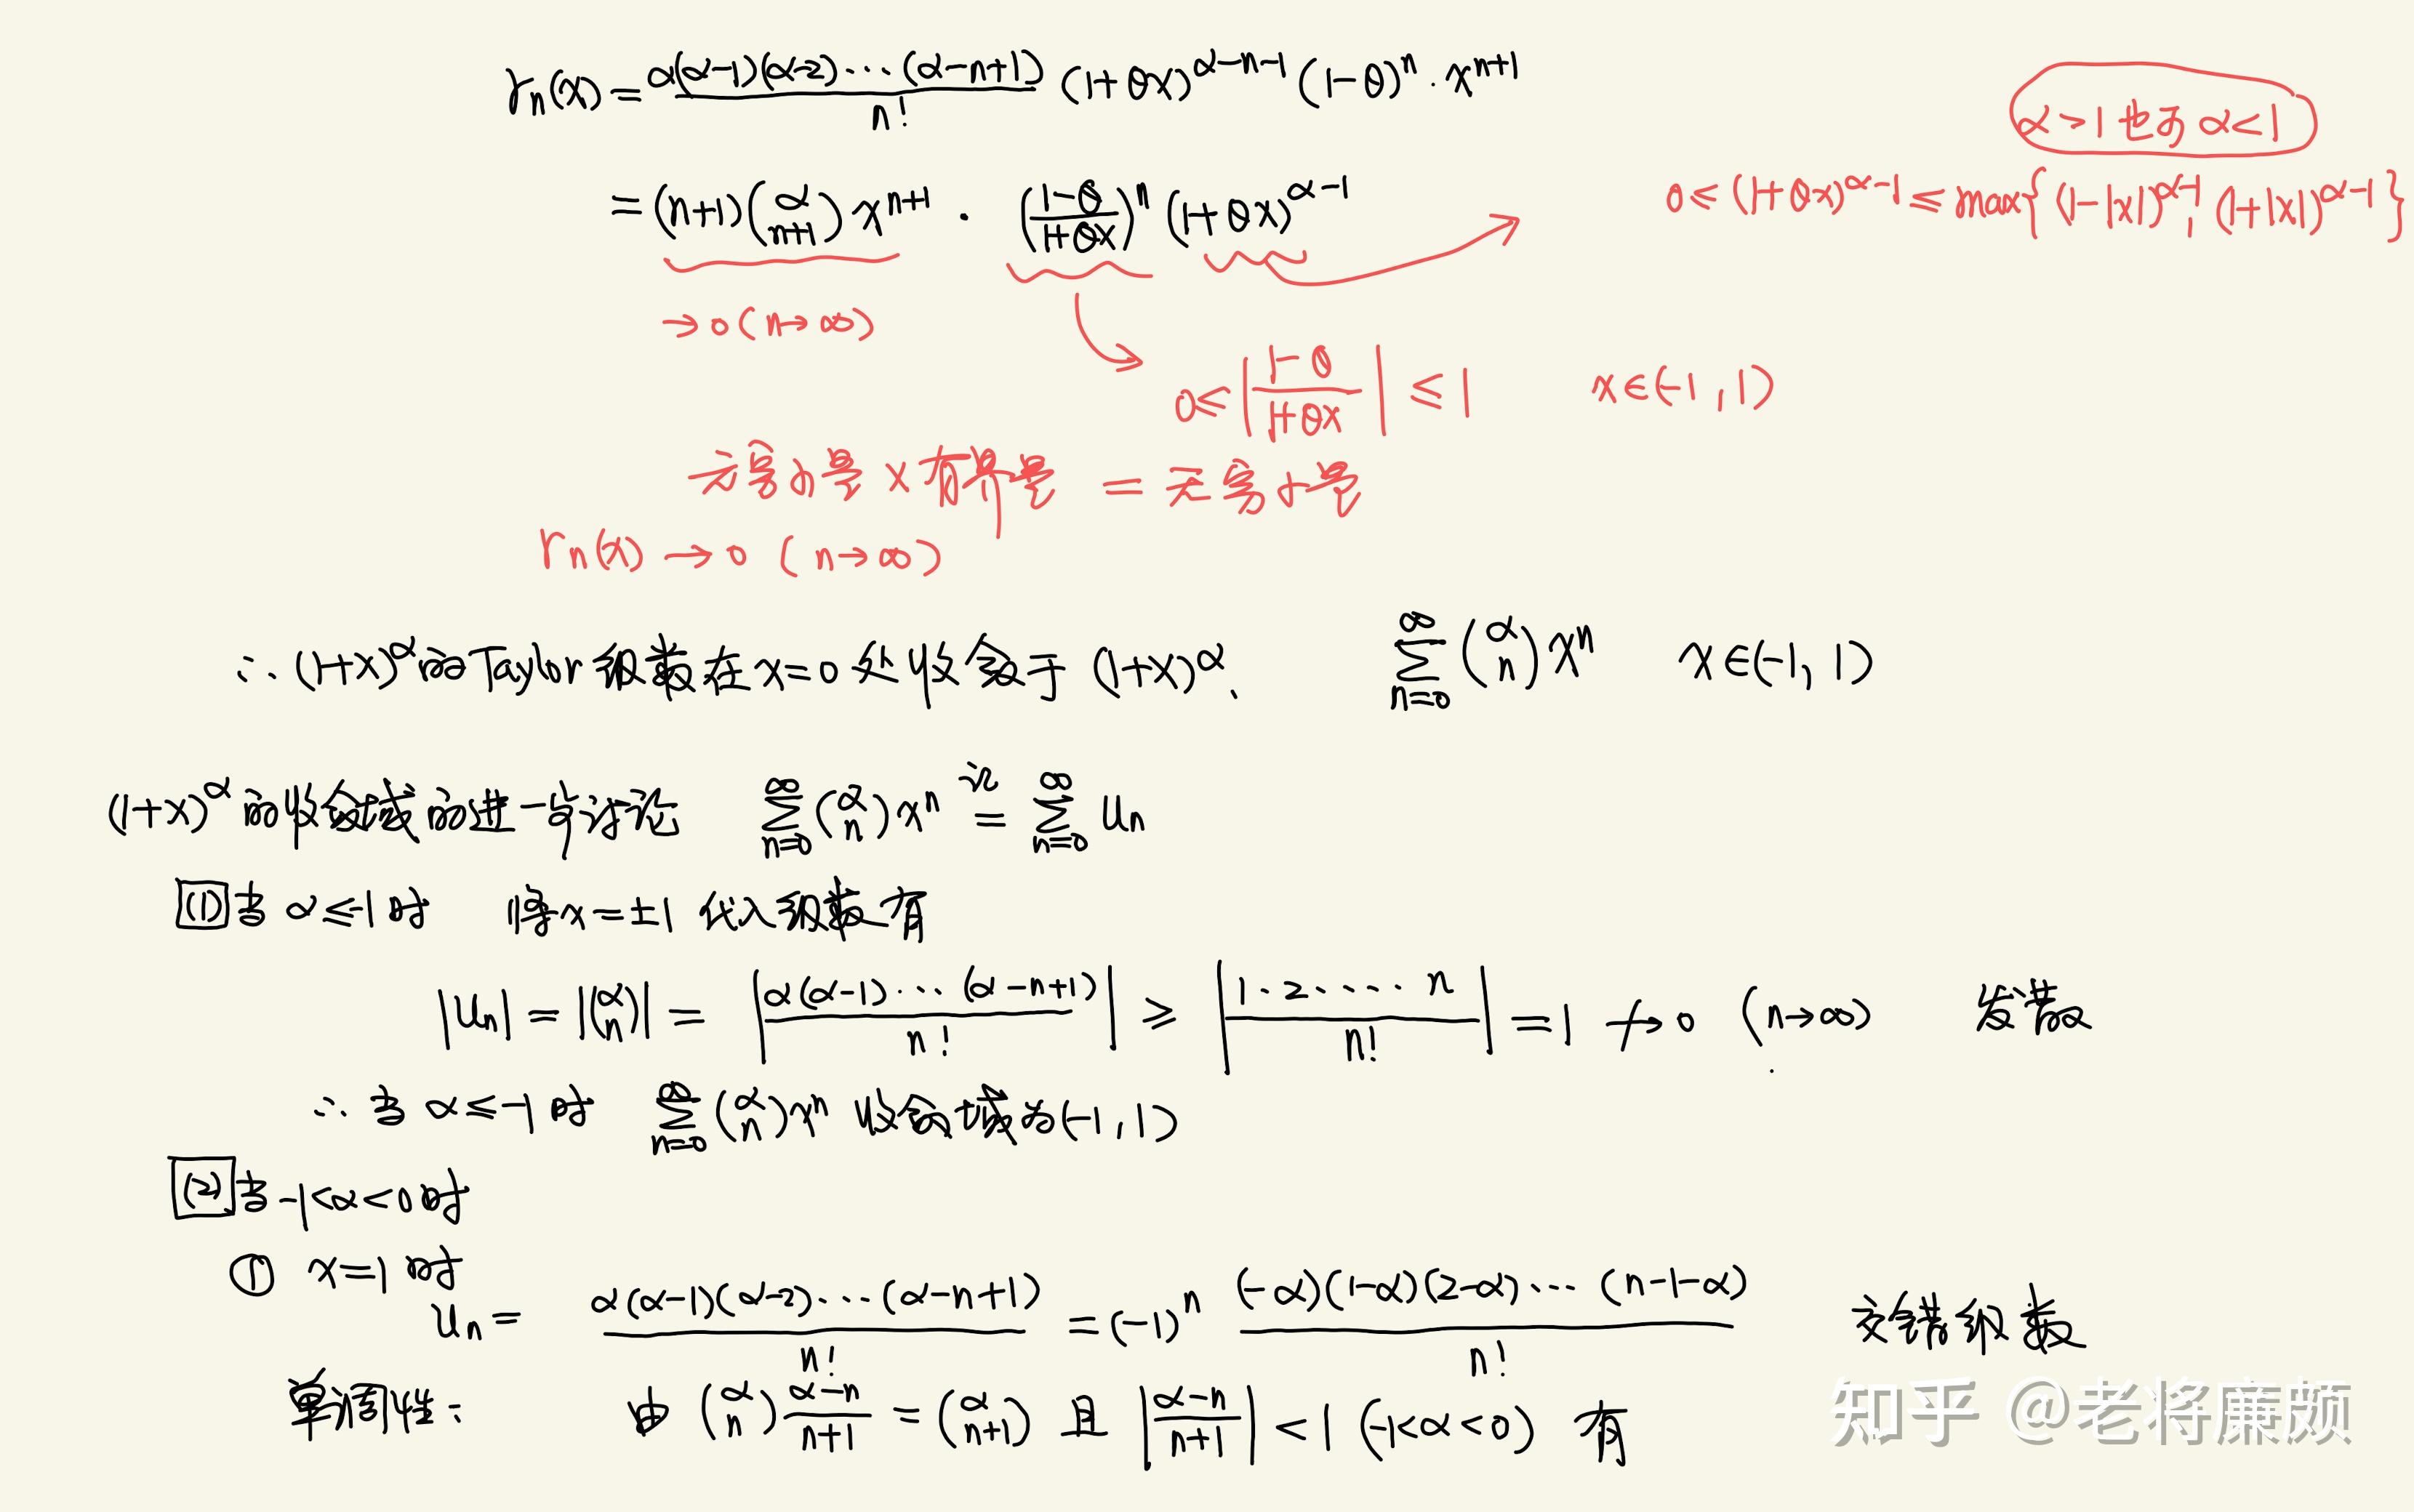 rₙ(x) = α(α-1)(α-2)⋯(α-n+1) / n! (1+θx)^(α-n-1) (1-θ)^n · x^(n+1)
α>1 也可 α<1
= (n+1)(α n+1) x^(n+1) · ((1-θ)/(1+θx))^n (1+θx)^(α-1)
0 ≤ (1+θx)^(α-1) ≤ max{(1-|x|)^(α-1), (1+|x|)^(α-1)}
→0 (n→∞)
0 ≤ |(1-θ)/(1+θx)| ≤ 1 x∈(-1,1)
无穷小量 × 有界量 = 无穷小量
rₙ(x) → 0 (n→∞)
∴ (1+x)^α 的 Taylor 级数在 x=0 处收敛于 (1+x)^α、 ∑_{n=0}^{∞} (α n) x^n x∈(-1,1)
(1+x)^α 的收敛域的进一步讨论 ∑_{n=0}^{∞} (α n) x^n 记= ∑_{n=0}^{∞} uₙ
(1) 当 α≤-1 时 将 x=±1 代入级数有
|uₙ| = |(α n)| = |α(α-1)⋯(α-n+1) / n!| ≥ |1·2·⋯·n / n!| = 1 ↛ 0 (n→∞) 发散
∴ 当 α≤-1 时 ∑_{n=0}^{∞} (α n) x^n 收敛域为 (-1,1)
(2) 当 -1<α<0 时
① x=1 时
uₙ = α(α-1)(α-2)⋯(α-n+1) / n! = (-1)^n (-α)(1-α)(2-α)⋯(n-1-α) / n! 交错级数
单调性: 由 (α n) (α-n)/(n+1) = (α n+1) 且 |(α-n)/(n+1)| < 1 (-1<α<0) 有
知乎 @老将廉颇